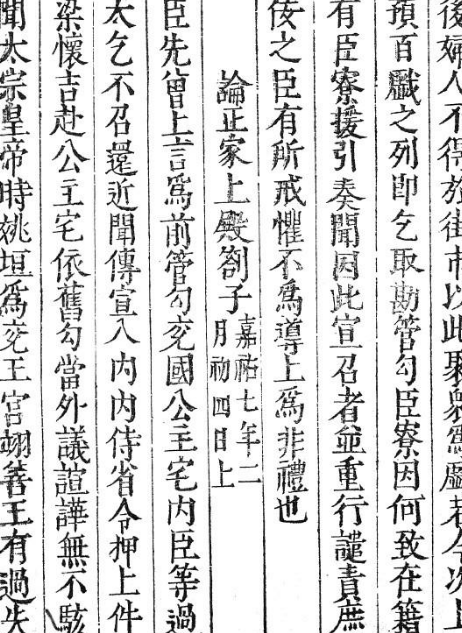 後婦人不得於街市以此聚衆爲戲若今次上
預百戲之列即乞取勘管勾臣寮因何致在籍
有臣寮援引奏聞因此宣召者並重行譴責庶
佞之臣有所戒懼不爲導上爲非禮也
論正家上殿劄子嘉祐七年二月初四日上
臣先曾上言爲前管勾兖國公主宅内臣等過
太乞不召還近聞傳宣入内内侍省令押上件
梁懷吉赴公主宅依舊勾當外議諠譁無不駭
聞太宗皇帝時姚垣爲兖王宫翊善王有過失